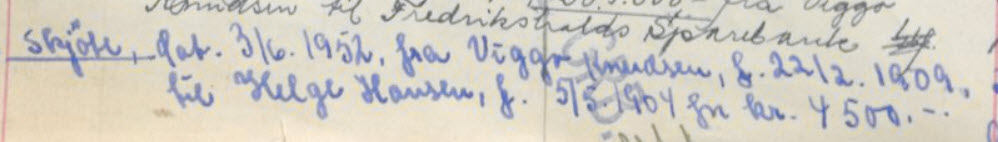 205.000 fra Viggo
Knudsen til Fredrikshalds Sparebank
Skjöte, dat. 3/6. 1952, fra Viggo Knudsen, f. 22/2. 1909,
til Helge Hansen, f. 5/5. 1904 for kr. 4500.-.